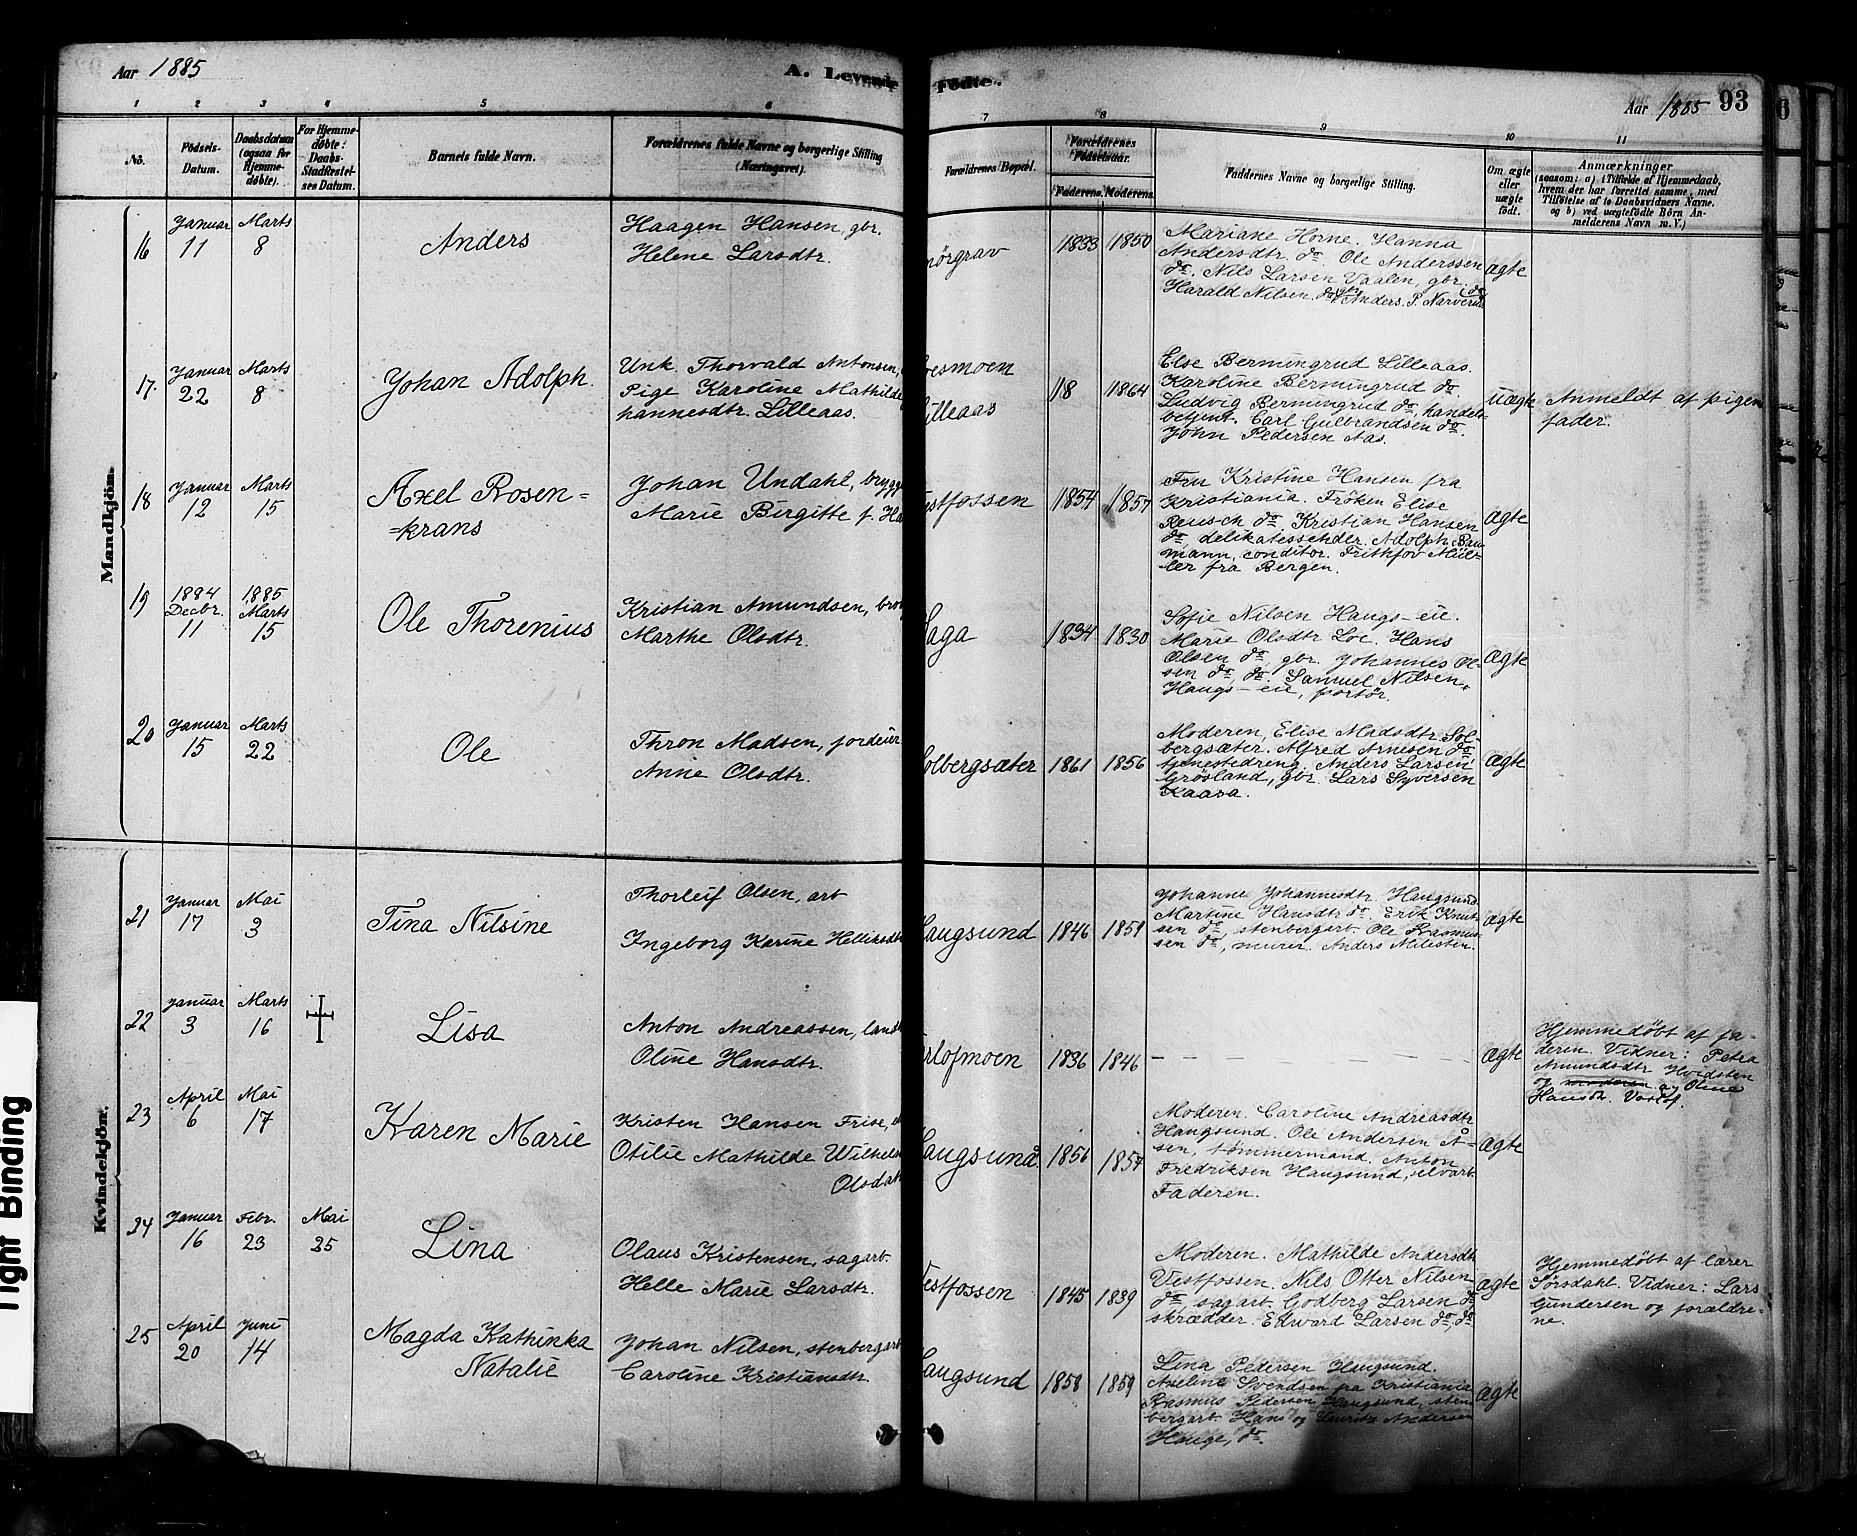 Aar 1885
A. Levende Fødte.
Aar 1885 93
1 2 3 4 5 6 7 8 9 10 11
No.
Fødsels-
Datum.
Daabsdatum
(ogsaa for
Hjemme-
døbte).
For Hjemme-
døbte:
Daabs-
Stadfæstel-
ses Datum.
Barnets fulde Navn.
Forældrenes fulde Navne og borgerlige Stilling
(Næringsvei).
Forældrenes Bopæl.
Forældrenes
Fødselsaar.
Faderens. Moderens.
Faddernes Navne og borgerlige Stilling.
Om ægte
eller
uægte
født.
Anmærkninger
(saasom: a) i Tilfælde af Hjemmedaab,
hvem der har forrettet samme, med
Tilføielse af to Daabsvidners Navne.
og b) ved uægtefødte Børn An-
melderens Navn m. V.)
Mandkjøn.
16
Januar
11
Marts
8
Anders
Haagen Hansen, gbr.
Helene Larsdtr.
mørgrav
1833 1850
Mariane Horne. Hanna
Andersdtr. do Ole Anderssen
do. Nils Larsen Vaalen, gbr.
Harald Nilsen. do gbr. Anders. P. Narverud do
Ægte
17.
Januar
22
Marts
8
Johan Adolph.
Unk. Thorvald Antonsen,
Pige Karoline Mathilde
hannesdtr. Lilleaas.
oesmoen
illeaas
18 1864
Else Bermingrud Lilleaas.
Karoline Bermingrud do
Ludvig Bermingrud do, handels-
betjent. Carl Gulbrandsen do.
John Pedersen Aas.
Uægte
Anmeldt af pigen
fader.
18
Januar
12
Marts
15
Axel Rosen=
=krans
Johan Undahl, brygg
Marie Birgitte f. Ha
estfossen
1854 1857
Fru Kristine Hansen fra
Kristiania. Frøken Elise
Reusch do. Kristian Hansen
do, delikatessehdler. Adolph Bau
mann, conditor. Frithjov Mül-
ler fra Bergen.
Ægte
19
1884
Decbr.
11
1885
Marts
15
Ole Thorenius
Kristian Amundsen, bro
Marthe Olsdtr.
aga
1834 1830
Sofie Nilsen Haugs-eie.
Marie Olsdtr Loe. Hans
Olsen do, gbr. Johannes Ol-
sen do, do. Samuel Nilsen,
Haugs-eie, portør.
Ægte
20
Januar
15
Marts
22
Ole
Thron Madsen, jordeier
Anne Olsdtr.
olbergsæter
1861 1856
Moderen, Elise Madsdtr. Sol-
bergsæter. Alfred Arnesen do
tjenestedreng. Anders Larsen
Grøsland, gbr. Lars Syversen
Kaasa.
Ægte
Kvindekjøn.
21
Januar
17
Mai
3
Tina Nilsine
Thorleif Olsen, arb
Ingeborg Karine Helliksdtr
augsund
1846 1859
Johanne Johannesdtr. Haugsund
Martine Hansdtr do. Erik Knut-
sen do, stenbergarb. Ole Rasmus-
sen do, murer. Anders Milesten.
Ægte
22
Januar
3
Marts
16
Lisa
Anton Andreassen, land
Oline Hansdtr.
rlofmoen
1836 1846
— — — — — —
Ægte
Hjemmedøbt af fa-
deren. Vidner: Petra
Amundsdtr Hvidsten
og Oline
Hansdtr.
23
April
6
Mai
17
Karen Marie
Kristen Hansen Frise,
Otilie Mathilde Wilhelm
Olsdatt
augsund
1856 1857
Moderen. Caroline Andreasdtr
Haugsund. Ole Andersen Å-
sen, tømmermand. Anton
Fredriksen Haugsund, elvarb.
Faderen.
Ægte
24
Januar
16
Febr.
23
Mai
25
Lina
Olaus Kristensen, sagarb.
Helle Marie Larsdtr.
estfossen
1845 1839
Moderen. Mathilde Andersdtr
Vestfossen. Nils Otter Nilsen
do sagarb. Godberg Larsen do
skrædder. Edvard Larsen do, do
Ægte
Hjemmedøbt af lærer
Sørsdahl. Vidner: Lars
Gundersen og forældre-
ne.
25
April
20
Juni
14
Magda Kathinka
Natalie
Johan Nilsen, stenbergarb
Caroline Kristiansdtr.
augsund
1858 1859
Lina Pedersen Haugsund.
Axeline Svendsen fra Kristiania
Rasmus Pedersen Haugsund, sten
bergarb. Hans og Lauritz Andersen
Hauge, do.
Ægte
Tight Binding